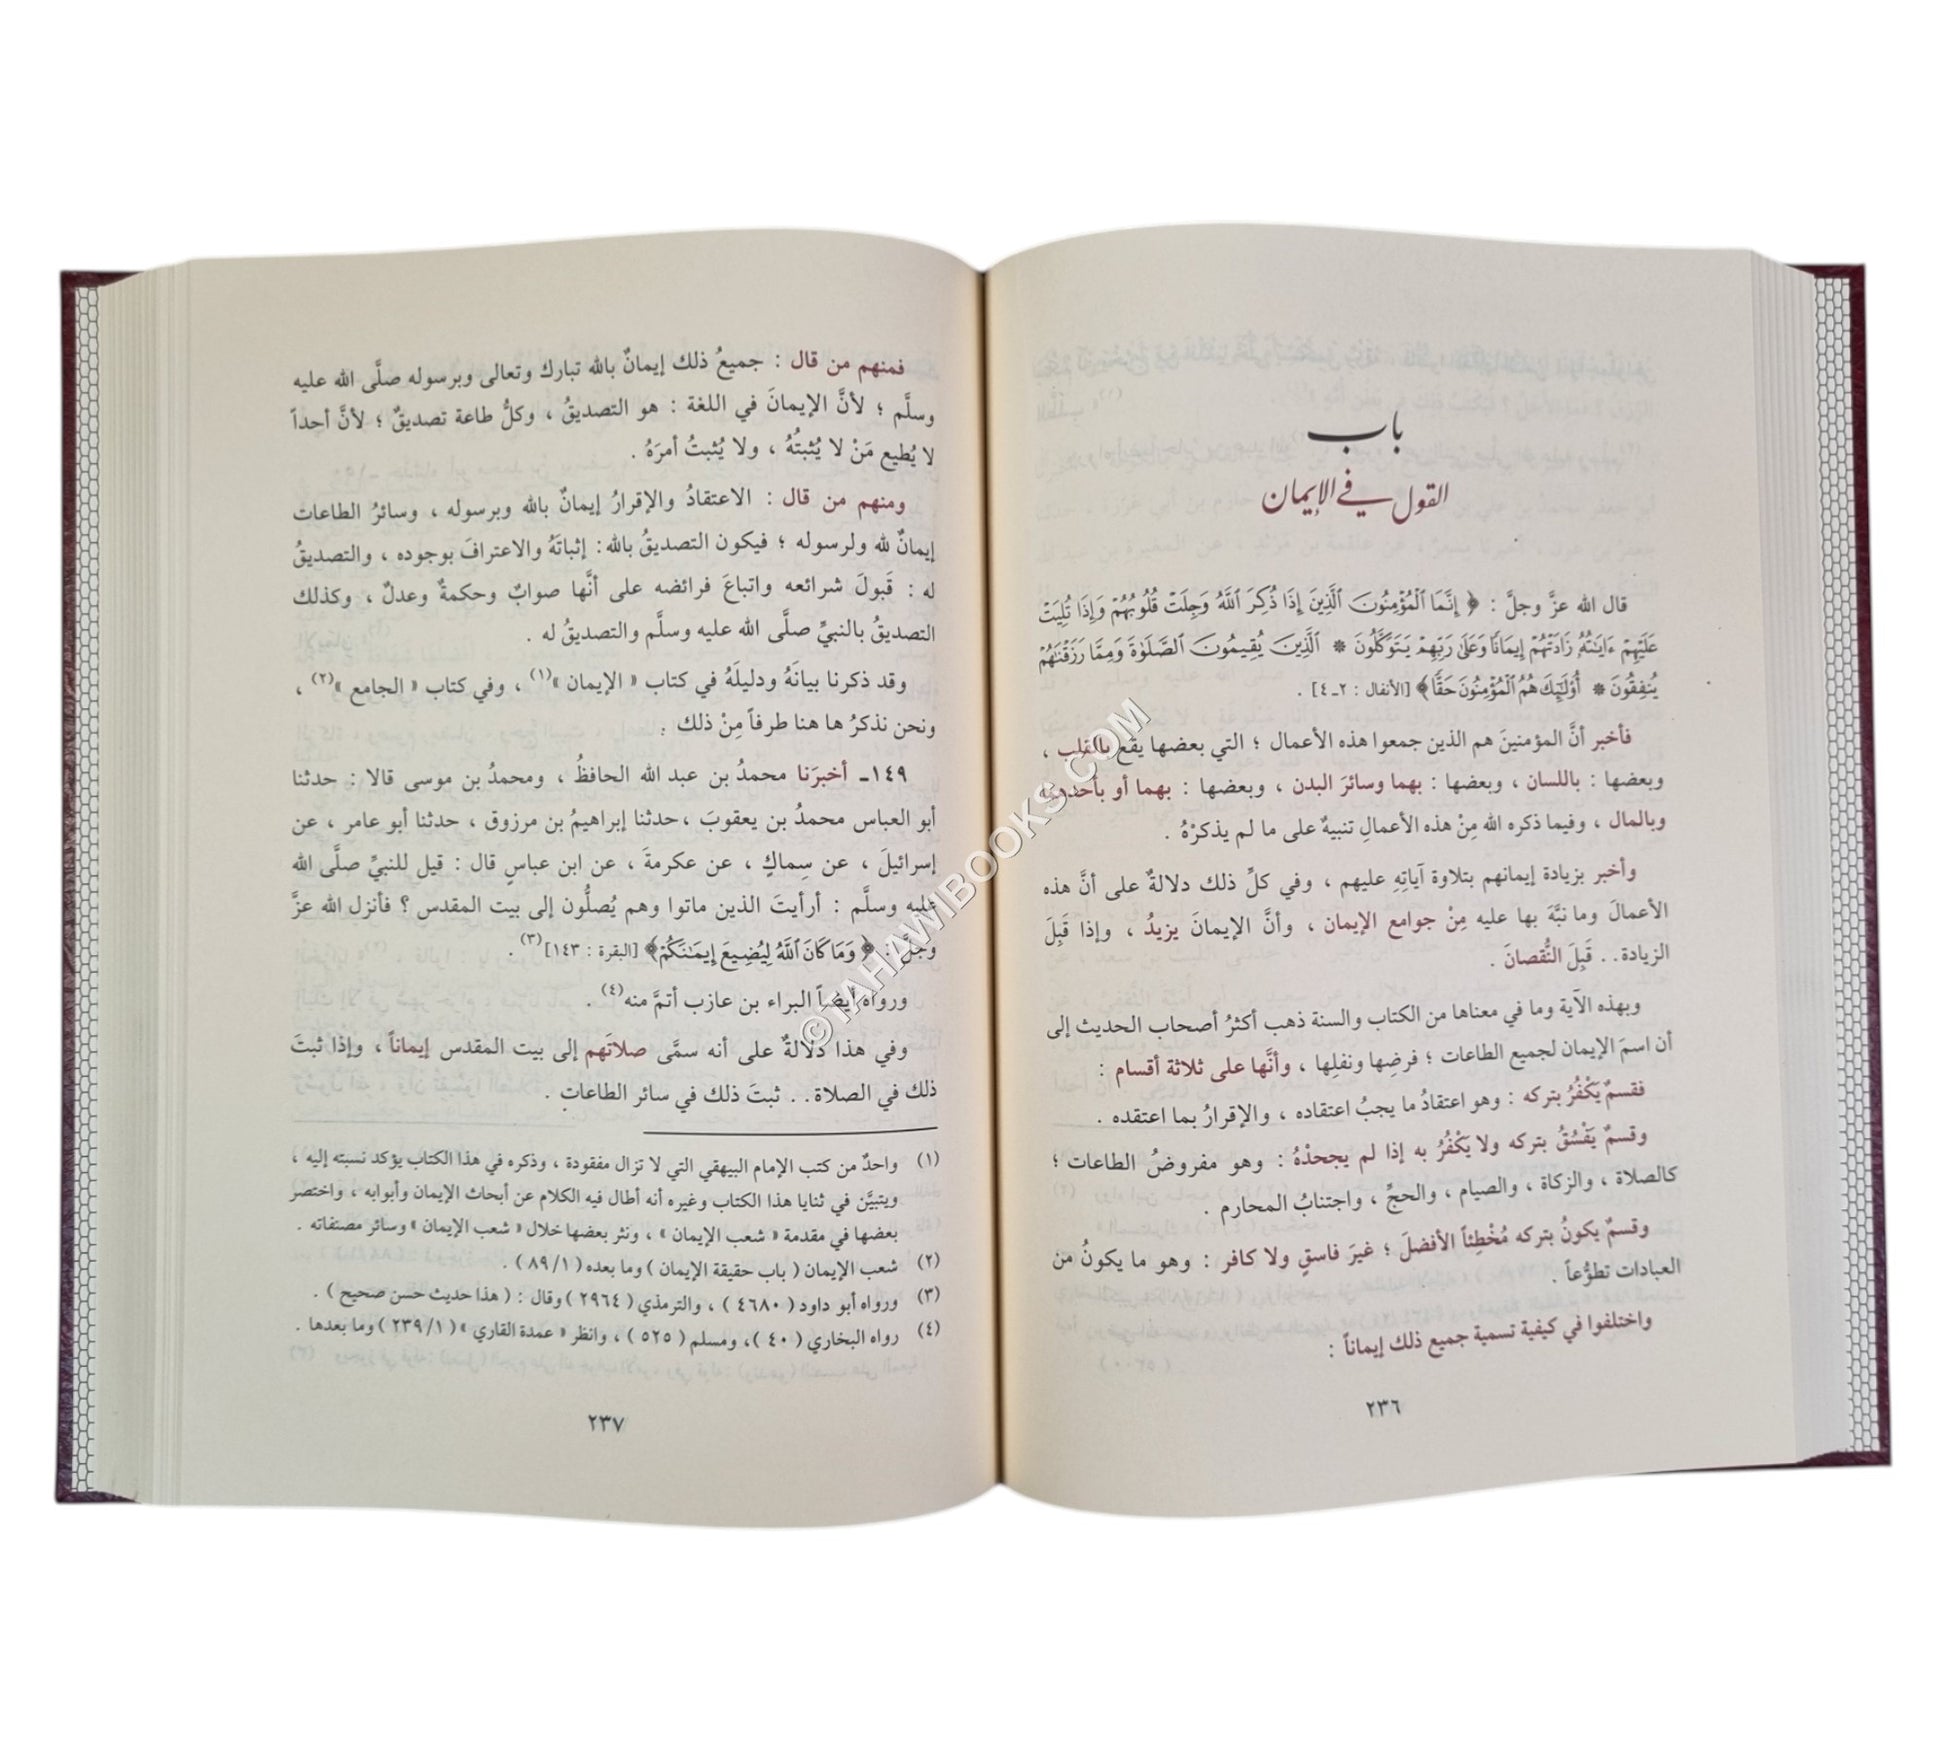 باب
القول في الإيمان
قال الله عزَّ وجلَّ : ﴿ إِنَّمَا ٱلْمُؤْمِنُونَ ٱلَّذِينَ إِذَا ذُكِرَ ٱللَّهُ وَجِلَتْ قُلُوبُهُمْ وَإِذَا تُلِيَتْ
عَلَيْهِمْ ءَايَٰتُهُۥ زَادَتْهُمْ إِيمَٰنًا وَعَلَىٰ رَبِّهِمْ يَتَوَكَّلُونَ * ٱلَّذِينَ يُقِيمُونَ ٱلصَّلَوٰةَ وَمِمَّا رَزَقْنَٰهُمْ
يُنفِقُونَ * أُوْلَٰٓئِكَ هُمُ ٱلْمُؤْمِنُونَ حَقًّا﴾ [الأنفال : ٢ـ٤] .
فأخبر أنَّ المؤمنينَ هم الذين جمعوا هذه الأعمال ؛ التي بعضها يقع بالقلب ،
وبعضها : باللسان ، وبعضها : بهما وسائرَ البدن ، وبعضها : بهما أو بأحدهما
وبالمال ، وفيما ذكره الله مِنْ هذه الأعمالِ تنبيهٌ على ما لم يذكرْهُ .
وأخبر بزيادة إيمانهم بتلاوة آياتِهِ عليهم ، وفي كلِّ ذلك دلالةٌ على أنَّ هذه
الأعمالَ وما نبَّهَ بها عليه مِنْ جوامع الإيمان ، وأنَّ الإيمانَ يزيدُ ، وإذا قَبِلَ
الزيادة.. قَبِلَ النُّقصانَ .
وبهذه الآية وما في معناها من الكتاب والسنة ذهب أكثرُ أصحاب الحديث إلى
أن اسمَ الإيمان لجميع الطاعات ؛ فرضِها ونفلِها ، وأنَّها على ثلاثة أقسام :
فقسمٌ يَكْفُرُ بتركه : وهو اعتقادُ ما يجبُ اعتقاده ، والإقرارُ بما اعتقده .
وقسمٌ يَفْسُقُ بتركه ولا يَكْفُرُ به إذا لم يجحدْهُ : وهو مفروضُ الطاعات ؛
كالصلاة ، والزكاة ، والصيام ، والحجِّ ، واجتنابُ المحارم .
وقسمٌ يكونُ بتركه مُخْطِئاً الأفضلَ ؛ غيرَ فاسقٍ ولا كافر : وهو ما يكونُ من
العبادات تطوُّعاً .
واختلفوا في كيفية تسمية جميع ذلك إيماناً :
٢٣٦
فمنهم من قال : جميعُ ذلك إيمانٌ بالله تبارك وتعالى وبرسوله صلَّى الله عليه
وسلَّم ؛ لأنَّ الإيمانَ في اللغة : هو التصديقُ ، وكلُّ طاعة تصديقٌ ؛ لأنَّ أحداً
لا يُطيع مَنْ لا يُثبتُهُ ، ولا يُثبتُ أمرَهُ .
ومنهم من قال : الاعتقادُ والإقرارُ إيمانٌ بالله وبرسوله ، وسائرُ الطاعات
إيمانٌ لله ولرسوله ؛ فيكون التصديقُ بالله : إثباتَهُ والاعترافَ بوجوده ، والتصديقُ
له : قَبولَ شرائعه واتباعَ فرائضه على أنَّها صوابٌ وحكمةٌ وعدلٌ ، وكذلك
التصديقُ بالنبيِّ صلَّى الله عليه وسلَّم والتصديقُ له .
وقد ذكرنا بيانَهُ ودليلَهُ في كتاب « الإيمان »(١) ، وفي كتاب « الجامع »(٢) ،
ونحن نذكرُ ها هنا طرفاً مِنْ ذلك .
١٤٩ـ أخبرَنا محمدُ بن عبد الله الحافظُ ، ومحمدُ بن موسى قالا : حدثنا
أبو العباس محمدُ بن يعقوبَ ، حدثنا إبراهيمُ بن مرزوق ، حدثنا أبو عامر ، عن
إسرائيلَ ، عن سِماكٍ ، عن عكرمةَ ، عن ابن عباسٍ قال : قيل للنبيِّ صلَّى الله
عليه وسلَّم : أرأيتَ الذين ماتوا وهم يُصلُّون إلى بيت المقدس ؟ فأنزل الله عزَّ
وجلَّ : ﴿ وَمَا كَانَ ٱللَّهُ لِيُضِيعَ إِيمَٰنَكُمْ﴾ [البقرة : ١٤٣](٣) .
ورواه أيضاً البراء بن عازب أتمَّ منه(٤) .
وفي هذا دلالةٌ على أنه سمَّى صلاتَهم إلى بيت المقدس إيماناً ، وإذا ثبتَ
ذلك في الصلاة.. ثبتَ ذلك في سائر الطاعات .
(١) واحدٌ من كتب الإمام البيهقي التي لا تزال مفقودة ، وذكره في هذا الكتاب يؤكد نسبته إليه ،
ويتبيَّن في ثنايا هذا الكتاب وغيره أنه أطال فيه الكلام عن أبحاث الإيمان وأبوابه ، واختصر
بعضها في مقدمة « شعب الإيمان » ، ونثر بعضها خلال « شعب الإيمان » وسائر مصنفاته .
(٢) شعب الإيمان ( باب حقيقة الإيمان ) وما بعده ( ٨٩/١ ) .
(٣) ورواه أبو داود ( ٤٦٨٠ ) ، والترمذي ( ٢٩٦٤ ) وقال : ( هذا حديث حسن صحيح ) .
(٤) رواه البخاري ( ٤٠ ) ، ومسلم ( ٥٢٥ ) ، وانظر « عمدة القاري » ( ٢٣٩/١ ) وما بعدها .
٢٣٧
©TAHAWIBOOKS.COM